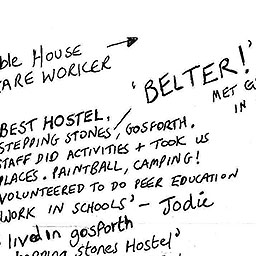 ble House
CARE WORKER
'BELTER!'
MET
IN
BEST HOSTEL.
STEPPING STONES, GOSFORTH.
STAFF DID ACTIVITIES + TOOK US
PLACES. PAINTBALL, CAMPING!
VOLUNTEERED TO DO PEER EDUCATION
WORK IN SCHOOLS' - Jodie
lived in gosforth
stones Hostel'